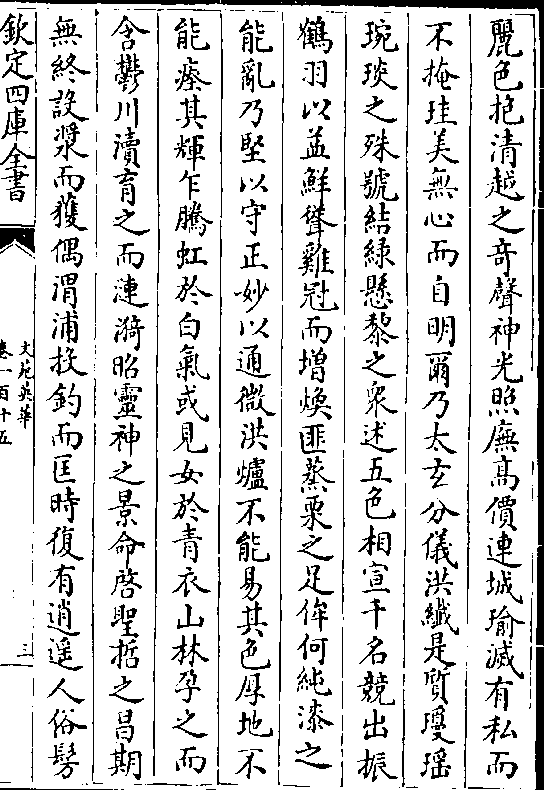 麗色抱清越之奇聲神光照廡髙價連城瑜滅有私而
不掩珪美無心而自明爾乃太𤣥分儀洪纎是質瓊瑶
琬琰之殊號結緑懸黎之衆述五色相宣千名競出振
鶴羽以益鮮聳雞冠而增煥匪蒸栗之足侔何純漆之
能亂乃堅以守正妙以通微洪爐不能易其色厚地不
能瘞其輝乍騰虹於白氣或見女於青衣山林孕之而
含鬱川瀆育之而漣漪昭靈神之景命啓聖哲之昌期
無終設漿而獲偶渭浦投釣而匡時復有逍遥人俗髣
欽定四庫全書
文苑英華
卷一百十五
三